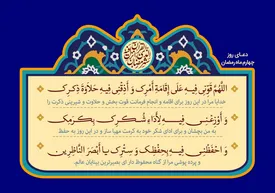 دعای روز
چهارم ماه رمضان
اللَّهُمَّ قَوِّنِي فِيهِ عَلَى إِقَامَةِ أَمْرِكَ وَ أَذِقْنِي فِيهِ حَلَاوَةَ ذِكْرِكَ
خدایا مرا در این روز برای اقامه و انجام فرمانت قوت بخش و حلاوت و شیرینی ذکرت را
وَ أَوْزِعْنِي فِيهِ لِأَدَاءِ شُكْرِكَ بِكَرَمِكَ
به من بچشان و برای ادای شکر خود به کرمت مهیا ساز و در این روز به حفظ
وَ احْفَظْنِي فِيهِ بِحِفْظِكَ وَ سِتْرِكَ يَا أَبْصَرَ النَّاظِرِينَ
و پرده پوشی مرا از گناه محفوظ دار ای بصیرترین بینایان عالم.